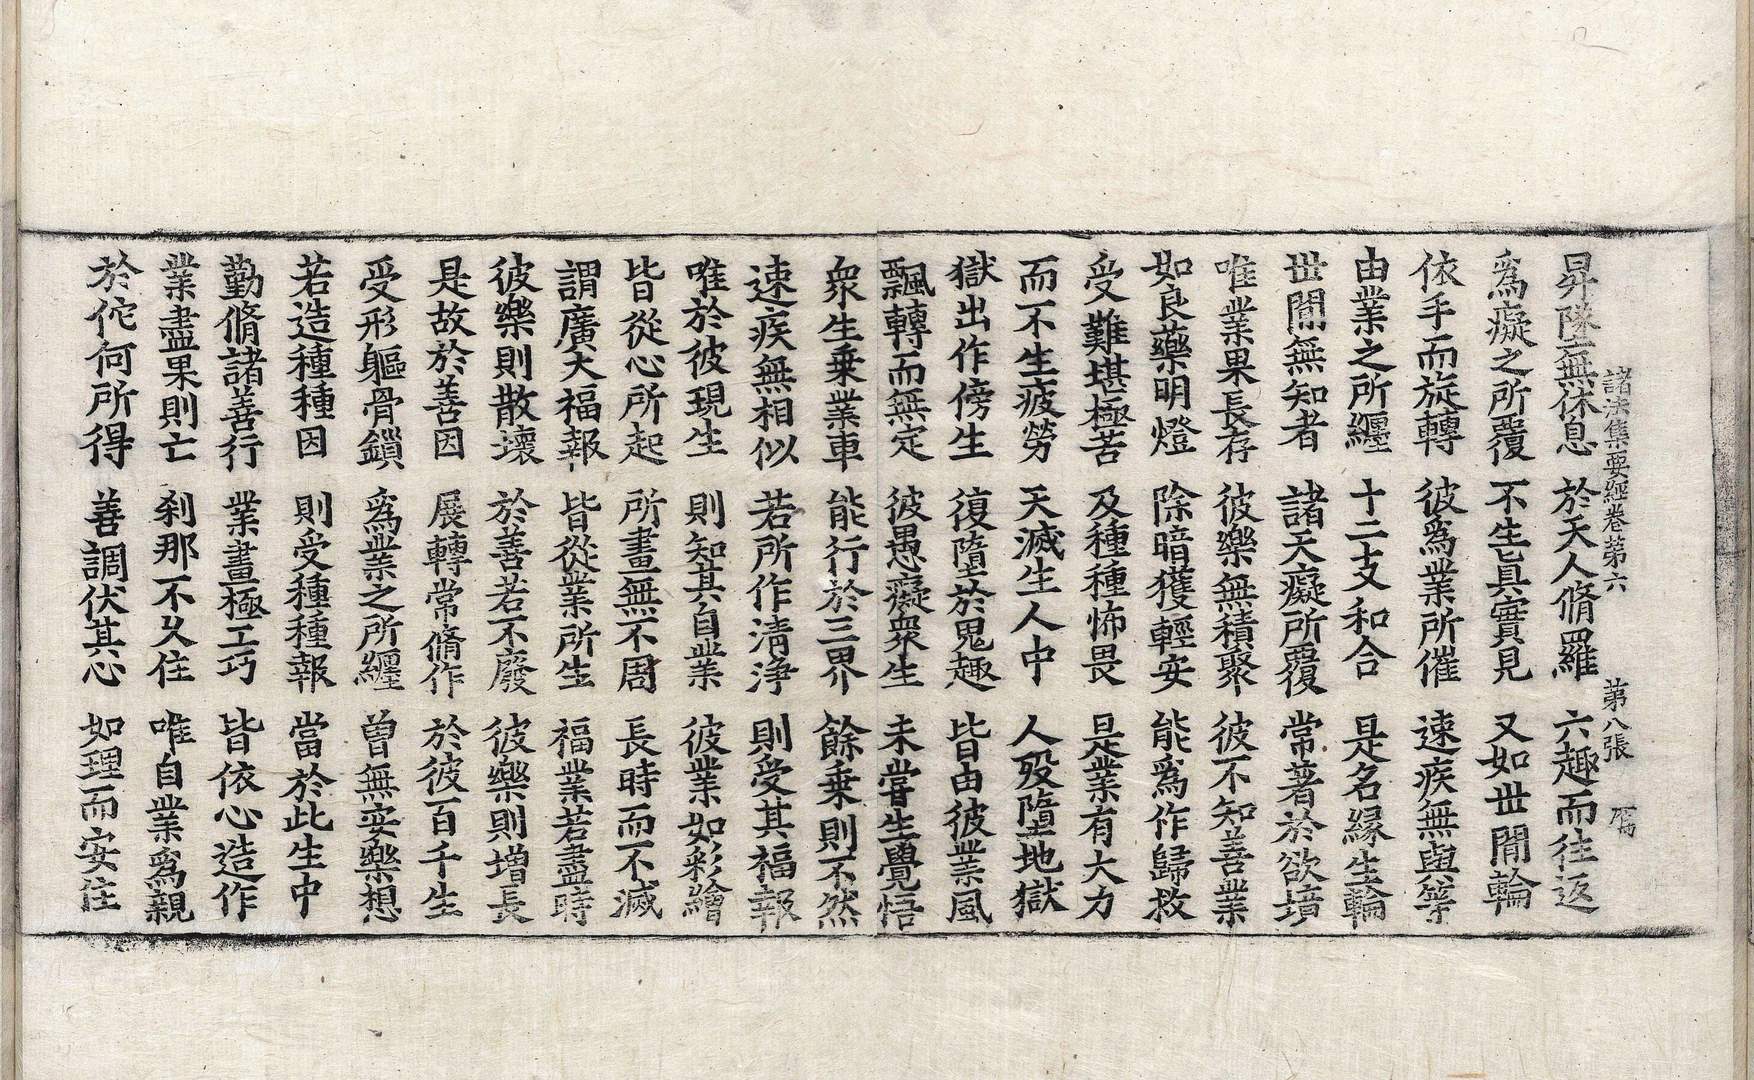 諸法集要經卷第六　第八張
昇墜無休息　於天人脩羅　六趣而往返
爲癡之所覆　不生眞實見　又如世間輪
依手而旋轉　彼爲業所催　速疾無與等
由業之所纏　十二支和合　是名緣生輪
世間無知者　諸天癡所覆　常著於欲境
唯業果長存　彼樂無積聚　彼不知善業
如良藥明燈　除暗獲輕安　能爲作歸救
受難堪極苦　及種種怖畏　是業有大力
而不生疲勞　天滅生人中　人歿墮地獄
獄出作傍生　復墮於鬼趣　皆由彼業風
飄轉而無定　彼愚癡衆生　未甞生覺悟
衆生乗業車　能行於三界　餘乗則不然
速疾無相似　若所作清浄　則受其福報
唯於彼現生　則知其自業　彼業如彩繪
皆從心所起　所畫無不周　長時而不滅
謂廣大福報　皆從業所生　福業若盡時
彼樂則散壞　於善若不廢　彼樂則增長
是故於善因　展轉常脩作　於彼百千生
受形軀骨鎖　爲業之所纏　曾無妄樂想
若造種種因　則受種種報　當於此生中
勤脩諸善行　業畫極工巧　皆依心造作
業盡果則亡　刹那不久住　唯自業爲親
於佗何所得　善調伏其心　如理而安住